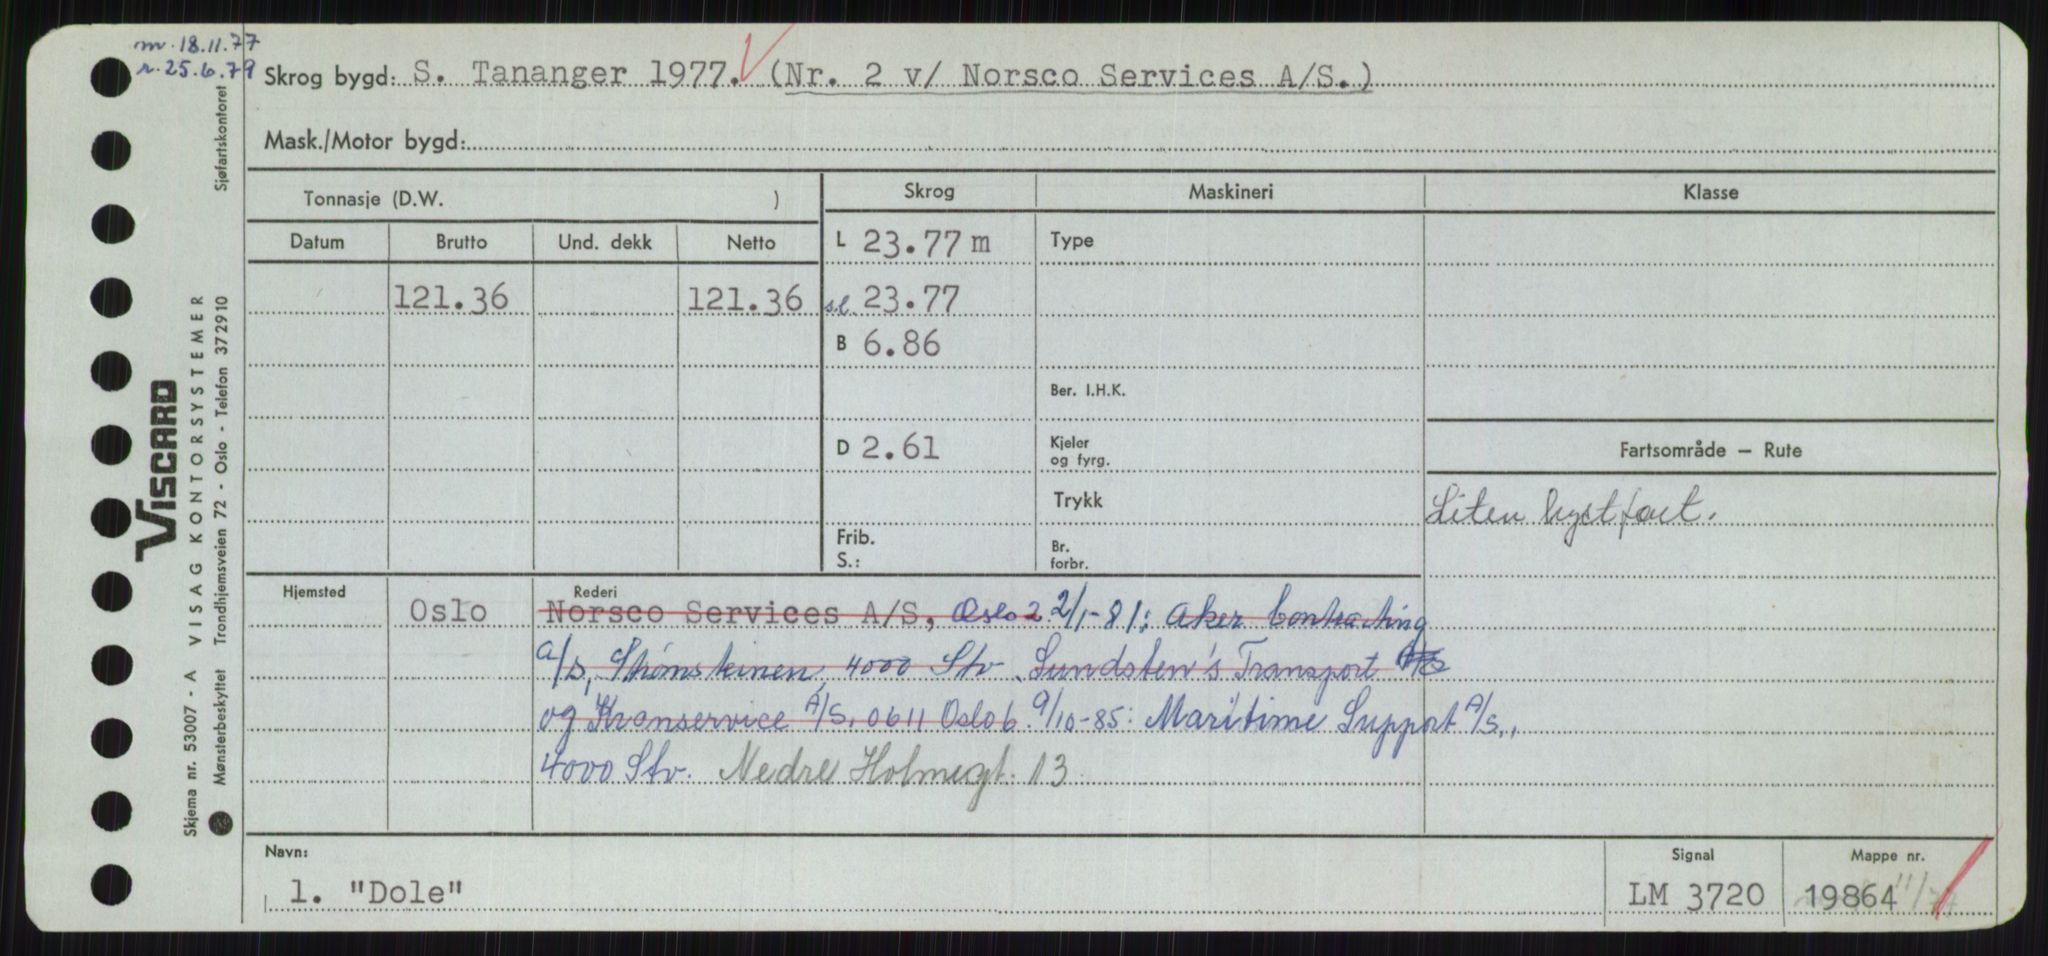 m. 18.11.77
r. 25.6.79
Skrog bygd: S. Tananger 1977. (Nr. 2 v/ Norsco Services A/S.)
Mask./Motor bygd:
Tonnasje (D.W. )
Skrog
Maskineri
Klasse
Datum
Brutto
Und. dekk
Netto
L 23.77 m
Type
121.36
121.36
s.l. 23.77
B 6.86
Ber. I.H.K.
D 2.61
Kjeler
og fyrg.
Fartsområde – Rute
Trykk
Liten kystfart.
Frib.
S.:
Br.
forbr.
Hjemsted
Oslo
Rederi
Norsco Services A/S, Oslo 2 2/1-81: Aker Contracting
A/S, Strømsteinen, 4000 Stv. Sundsten's Transport
og Kranservice A/S, 0611 Oslo 6. 9/10-85: Maritime Support A/S.,
4000 Stv. Nedre Holmegt. 13
Navn:
1. "Dole"
Signal
LM 3720
Mappe nr.
19864
VISCARD
Skjema nr. 53007 - A VISAG KONTORSYSTEMER
Mønsterbeskyttet Trondhjemsveien 72 - Oslo - Telefon 372910 Sjøfartskontoret